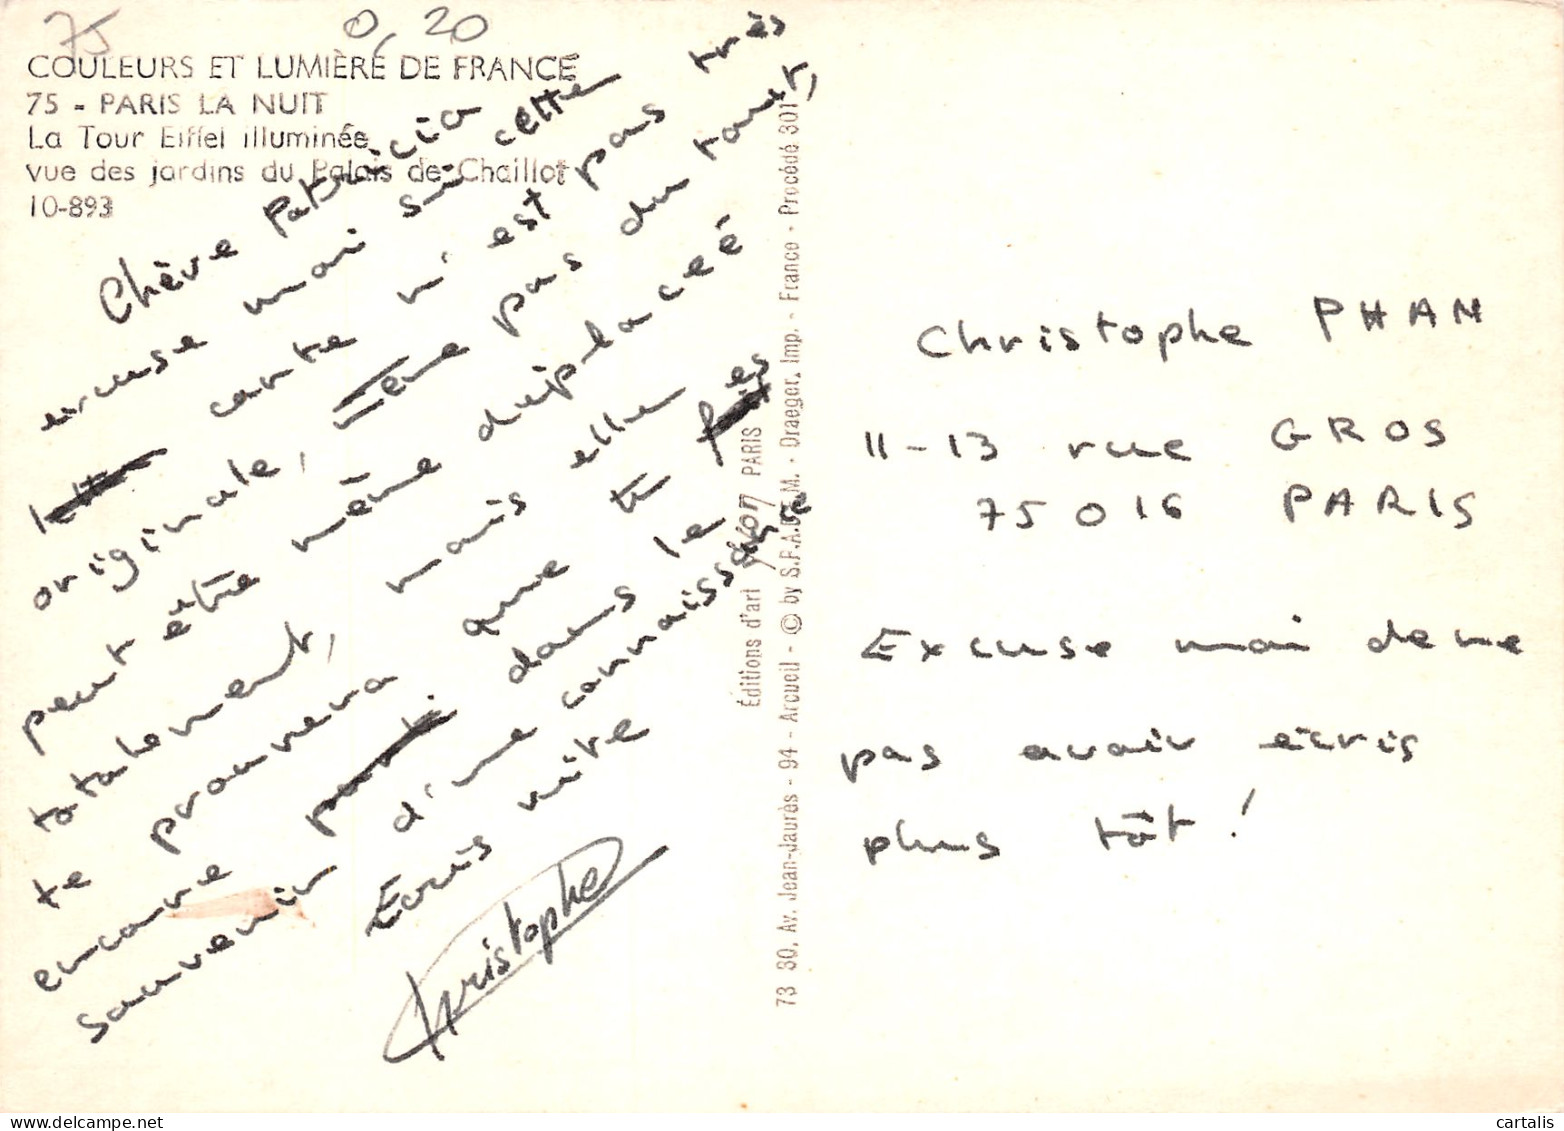 75
0,20
COULEURS ET LUMIÈRE DE FRANCE
75 - PARIS LA NUIT
La Tour Eiffel illuminée
vue des jardins du Palais de Chaillot
10-893
Chère Patricia
excuse moi si cette très
carte n'est pas
originale, même pas du tout,
peut être même déplaceé
totalement, mais elle
te prouvera que tu es
encore dans le
souvenir d'une connaissance
Ecris vite
Christophe
Éditions d'art Yvon PARIS
73 30, Av. Jean-Jaurès - 94 - Arcueil - © by S.P.A.D.E.M. - Draeger, Imp. - France - Procédé 301
Christophe PHAM
11-13 rue GROS
75016 PARIS
Excuse moi de ne
pas avoir écris
plus tôt !
cartalis